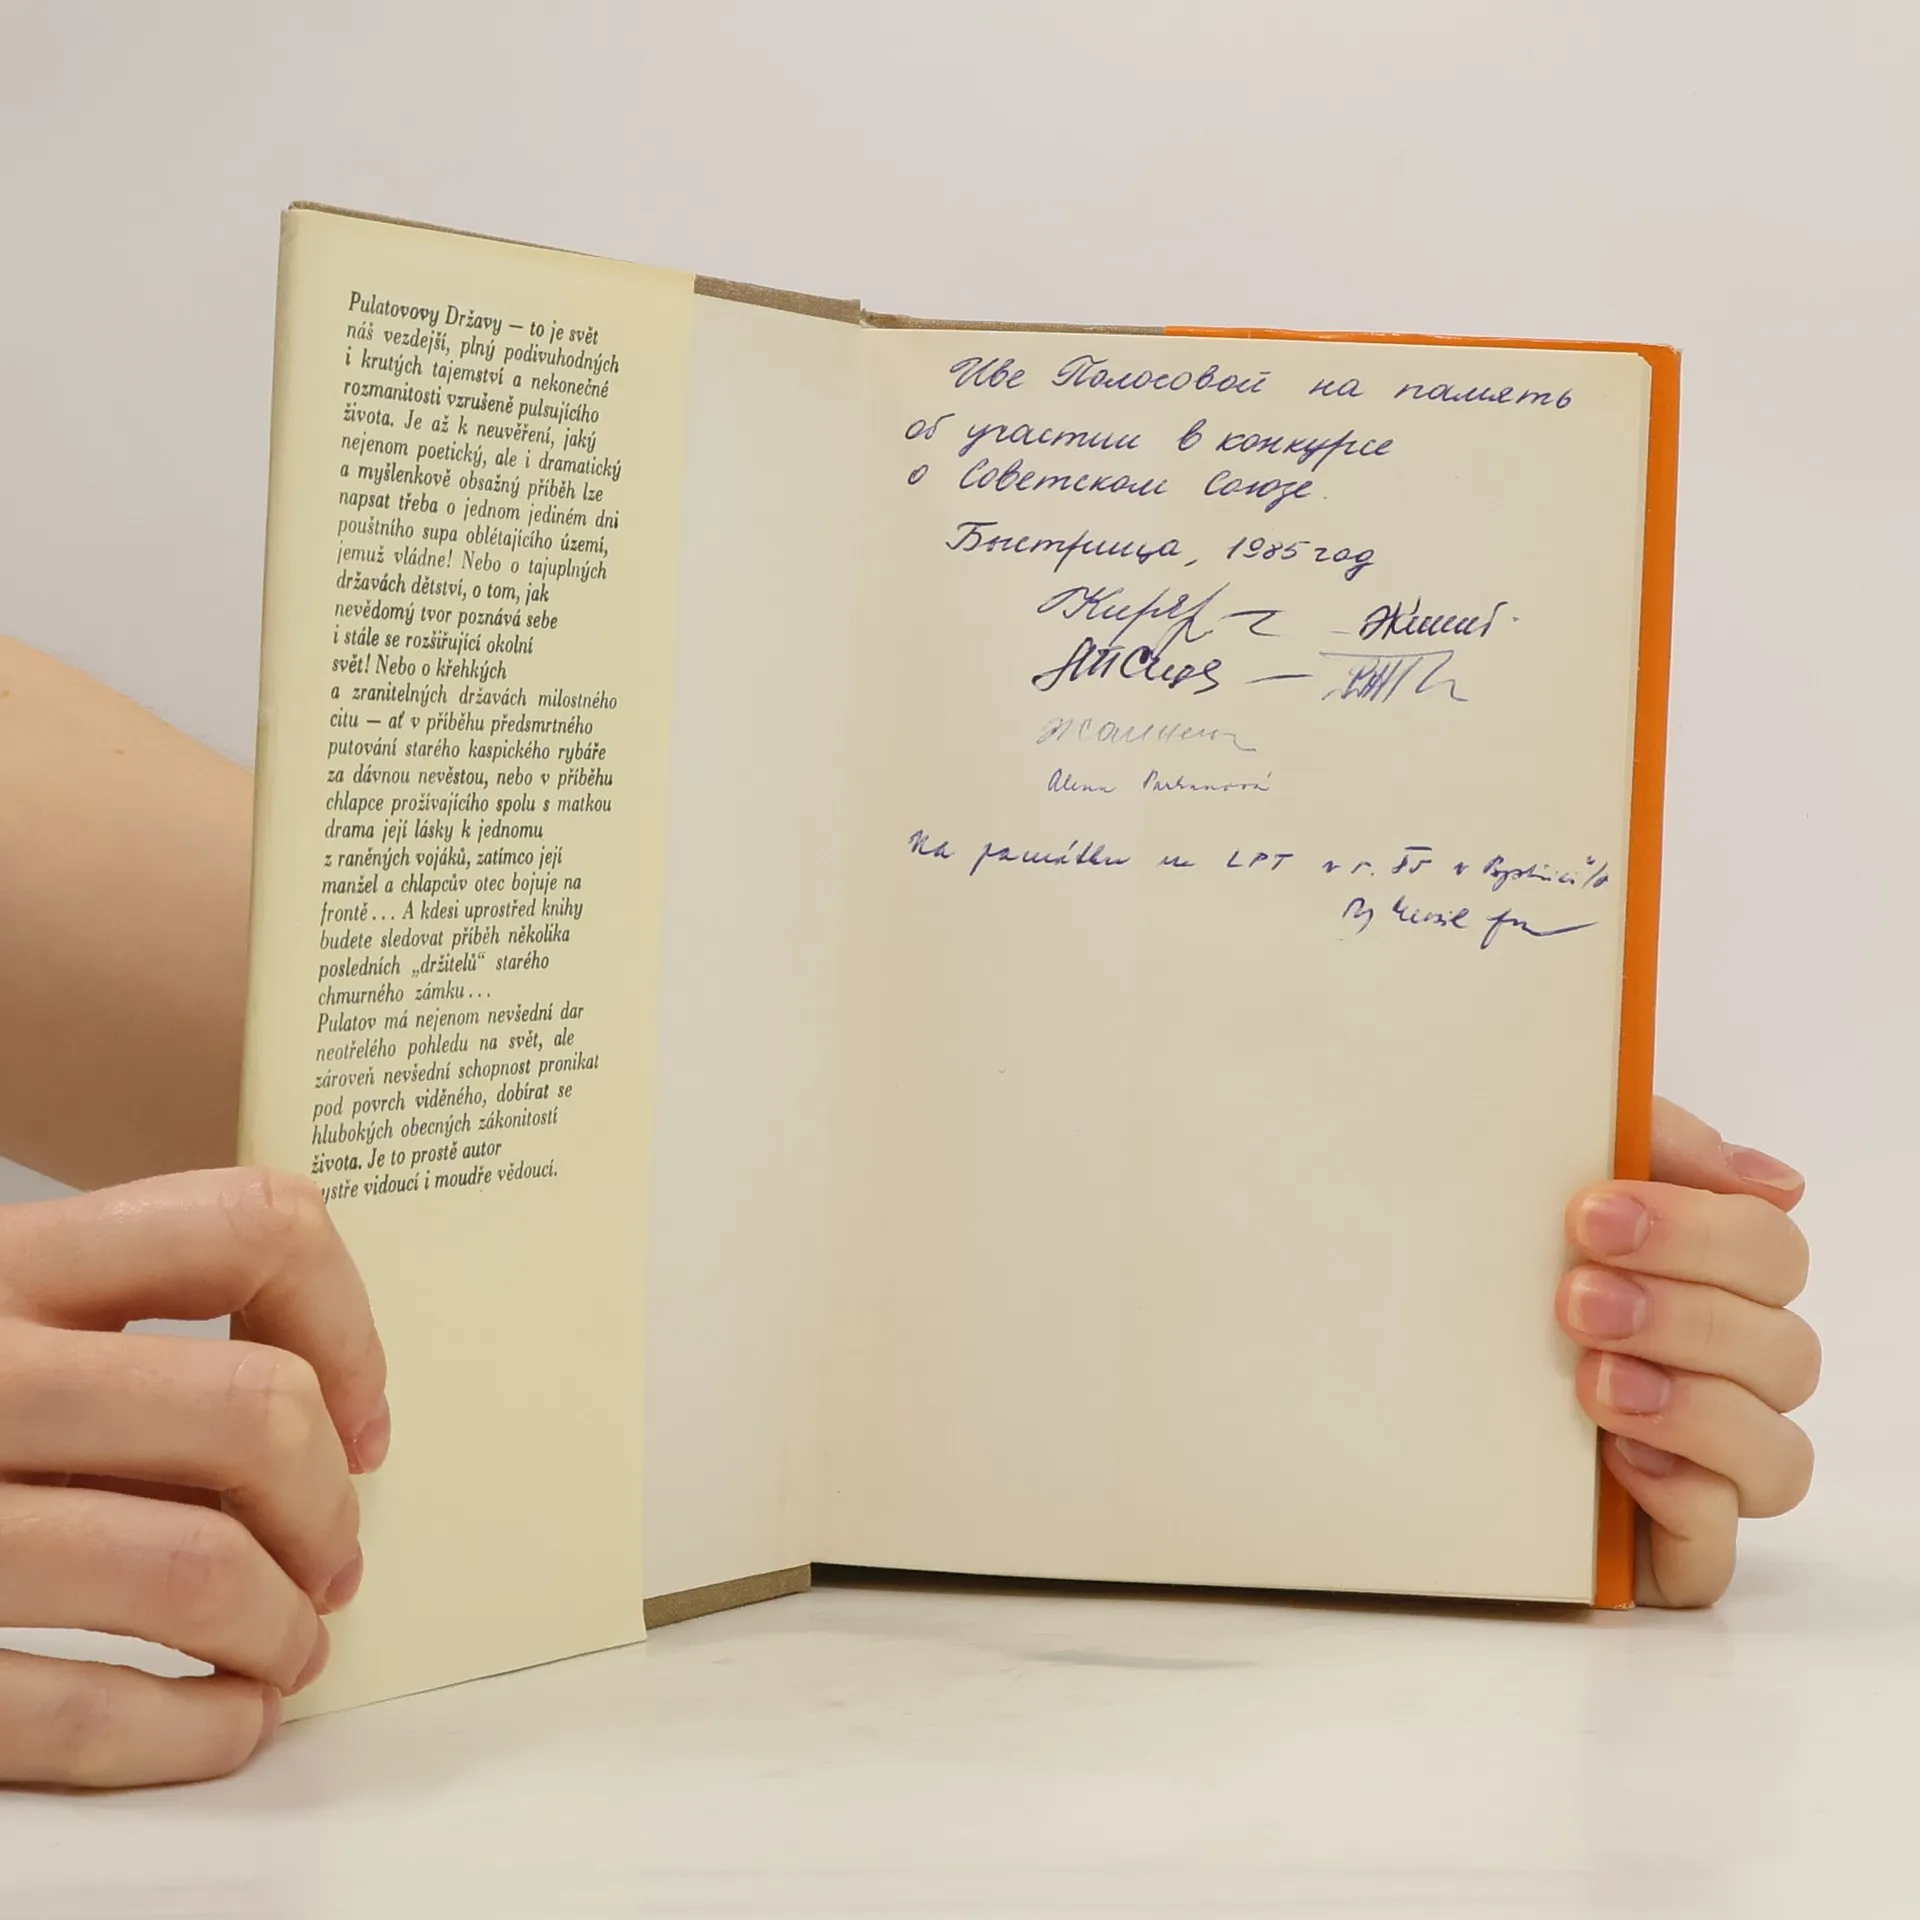 Pulatovovy Državy — to je svět
náš vezdejší, plný podivuhodných
i krutých tajemství a nekonečné
rozmanitosti vzrušeně pulsujícího
života. Je až k neuvěření, jaký
nejenom poetický, ale i dramatický
a myšlenkově obsažný příběh lze
napsat třeba o jednom jediném dni
pouštního supa oblétajícího území,
jemuž vládne! Nebo o tajuplných
državách dětství, o tom, jak
nevědomý tvor poznává sebe
i stále se rozšiřující okolní
svět! Nebo o křehkých
a zranitelných državách milostného
citu — ať v příběhu předsmrtného
putování starého kaspického rybáře
za dávnou nevěstou, nebo v příběhu
chlapce prožívajícího spolu s matkou
drama její lásky k jednomu
z raněných vojáků, zatímco její
manžel a chlapcův otec bojuje na
frontě... A kdesi uprostřed knihy
budete sledovat příběh několika
posledních „držitelů“ starého
chmurného zámku...
Pulatov má nejenom nevšední dar
neotřelého pohledu na svět, ale
zároveň nevšední schopnost pronikat
pod povrch viděného, dobírat se
hlubokých obecných zákonitostí
života. Je to prostě autor
ystře vidoucí i moudře vědoucí.
Иве Полосовой на память
об участии в конкурсе
о Советском Союзе.
Быстрица, 1985 год
Alena
Na památku LPT v r. 85 v